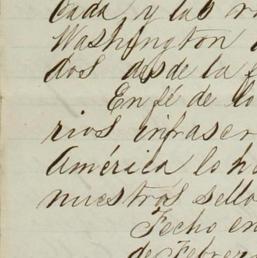 cada y las r
Washington
dos desde la f
En fé de lo
rios infrascr
América lo ha
nuestros sello
Fecho en
de Febrer